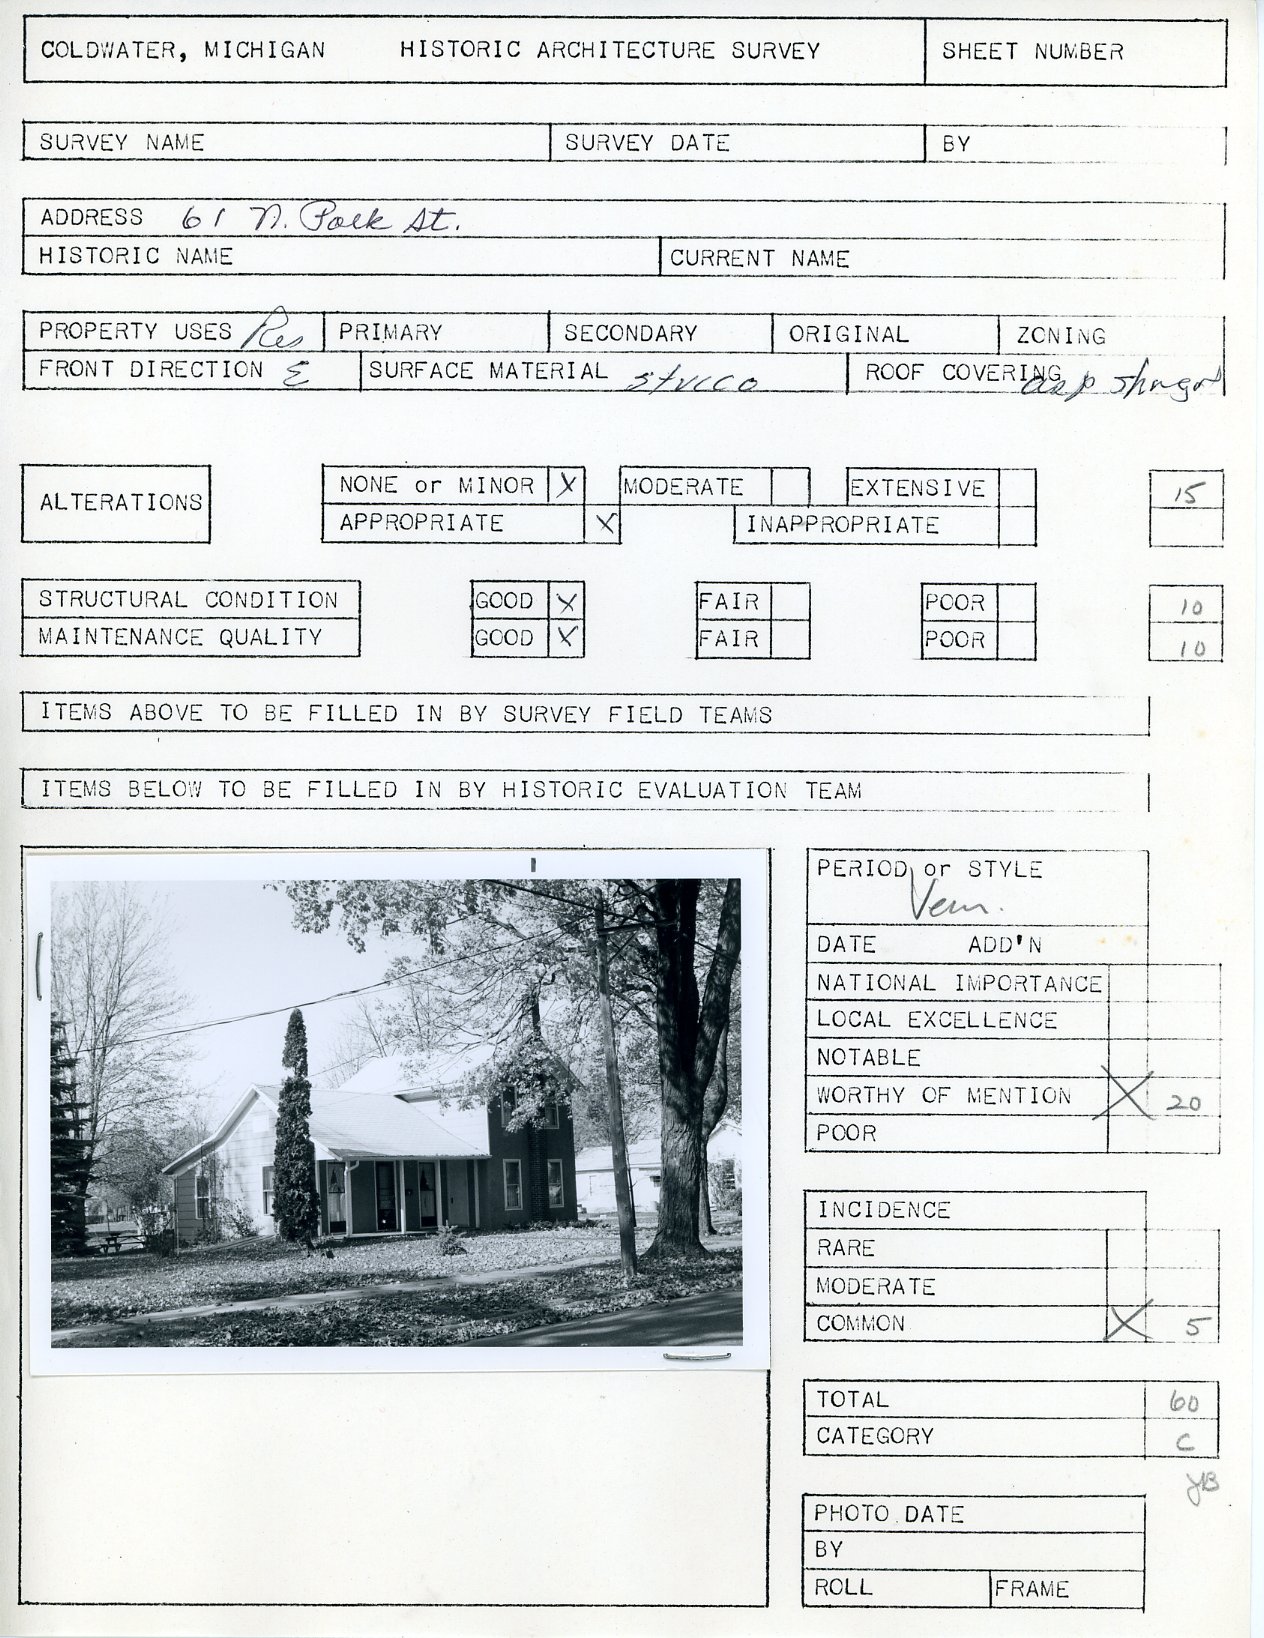 COLDWATER, MICHIGAN HISTORIC ARCHITECTURE SURVEY SHEET NUMBER
SURVEY NAME SURVEY DATE BY
ADDRESS 61 N. Polk St.
HISTORIC NAME CURRENT NAME
PROPERTY USES Res PRIMARY SECONDARY ORIGINAL ZONING
FRONT DIRECTION E SURFACE MATERIAL stucco ROOF COVERING asp
ALTERATIONS NONE or MINOR X MODERATE EXTENSIVE 15
APPROPRIATE X INAPPROPRIATE
STRUCTURAL CONDITION GOOD X FAIR POOR 10
MAINTENANCE QUALITY GOOD X FAIR POOR 10
ITEMS ABOVE TO BE FILLED IN BY SURVEY FIELD TEAMS
ITEMS BELOW TO BE FILLED IN BY HISTORIC EVALUATION TEAM
PERIOD or STYLE
Vern.
DATE ADD'N
NATIONAL IMPORTANCE
LOCAL EXCELLENCE
NOTABLE
WORTHY OF MENTION X 20
POOR
INCIDENCE
RARE
MODERATE
COMMON X 5
TOTAL 60
CATEGORY C
JB
PHOTO DATE
BY
ROLL FRAME